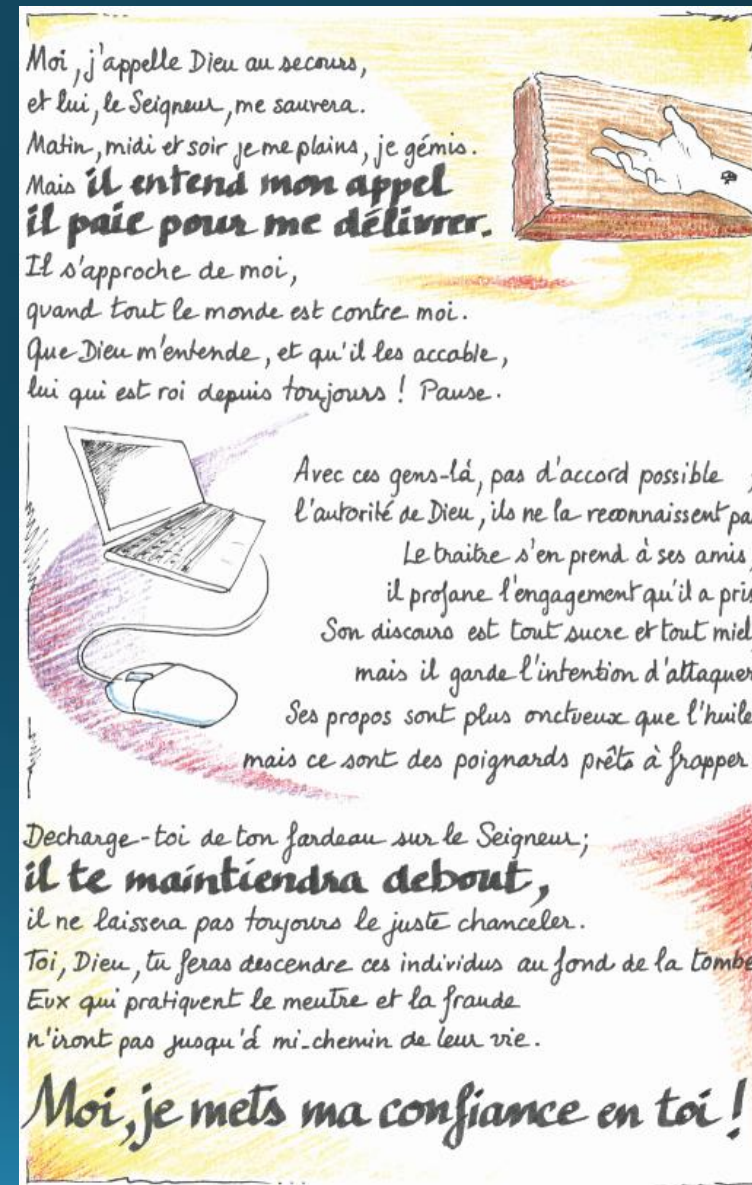 Moi, j'appelle Dieu au secours,
et lui, le Seigneur, me sauvera.
Matin, midi et soir je me plains, je gémis.
Mais il entend mon appel
il paie pour me délivrer.
Il s'approche de moi,
quand tout le monde est contre moi.
Que Dieu m'entende, et qu'il les accable,
lui qui est roi depuis toujours ! Pause.
Avec ces gens-là, pas d'accord possible ;
l'autorité de Dieu, ils ne la reconnaissent pa
Le traitre s'en prend à ses amis,
il profane l'engagement qu'il a pris
Son discours est tout sucre et tout miel
mais il garde l'intention d'attaquer
Ses propos sont plus onctueux que l'huile
mais ce sont des poignards prêts à frapper
Decharge-toi de ton fardeau sur le Seigneur;
il te maintiendra debout,
il ne laissera pas toujours le juste chanceler.
Toi, Dieu, tu feras descendre ces individus au fond de la tombe
Eux qui pratiquent le meutre et la fraude
n'iront pas jusqu'á mi-chemin de leur vie.
Moi, je mets ma confiance en toi !